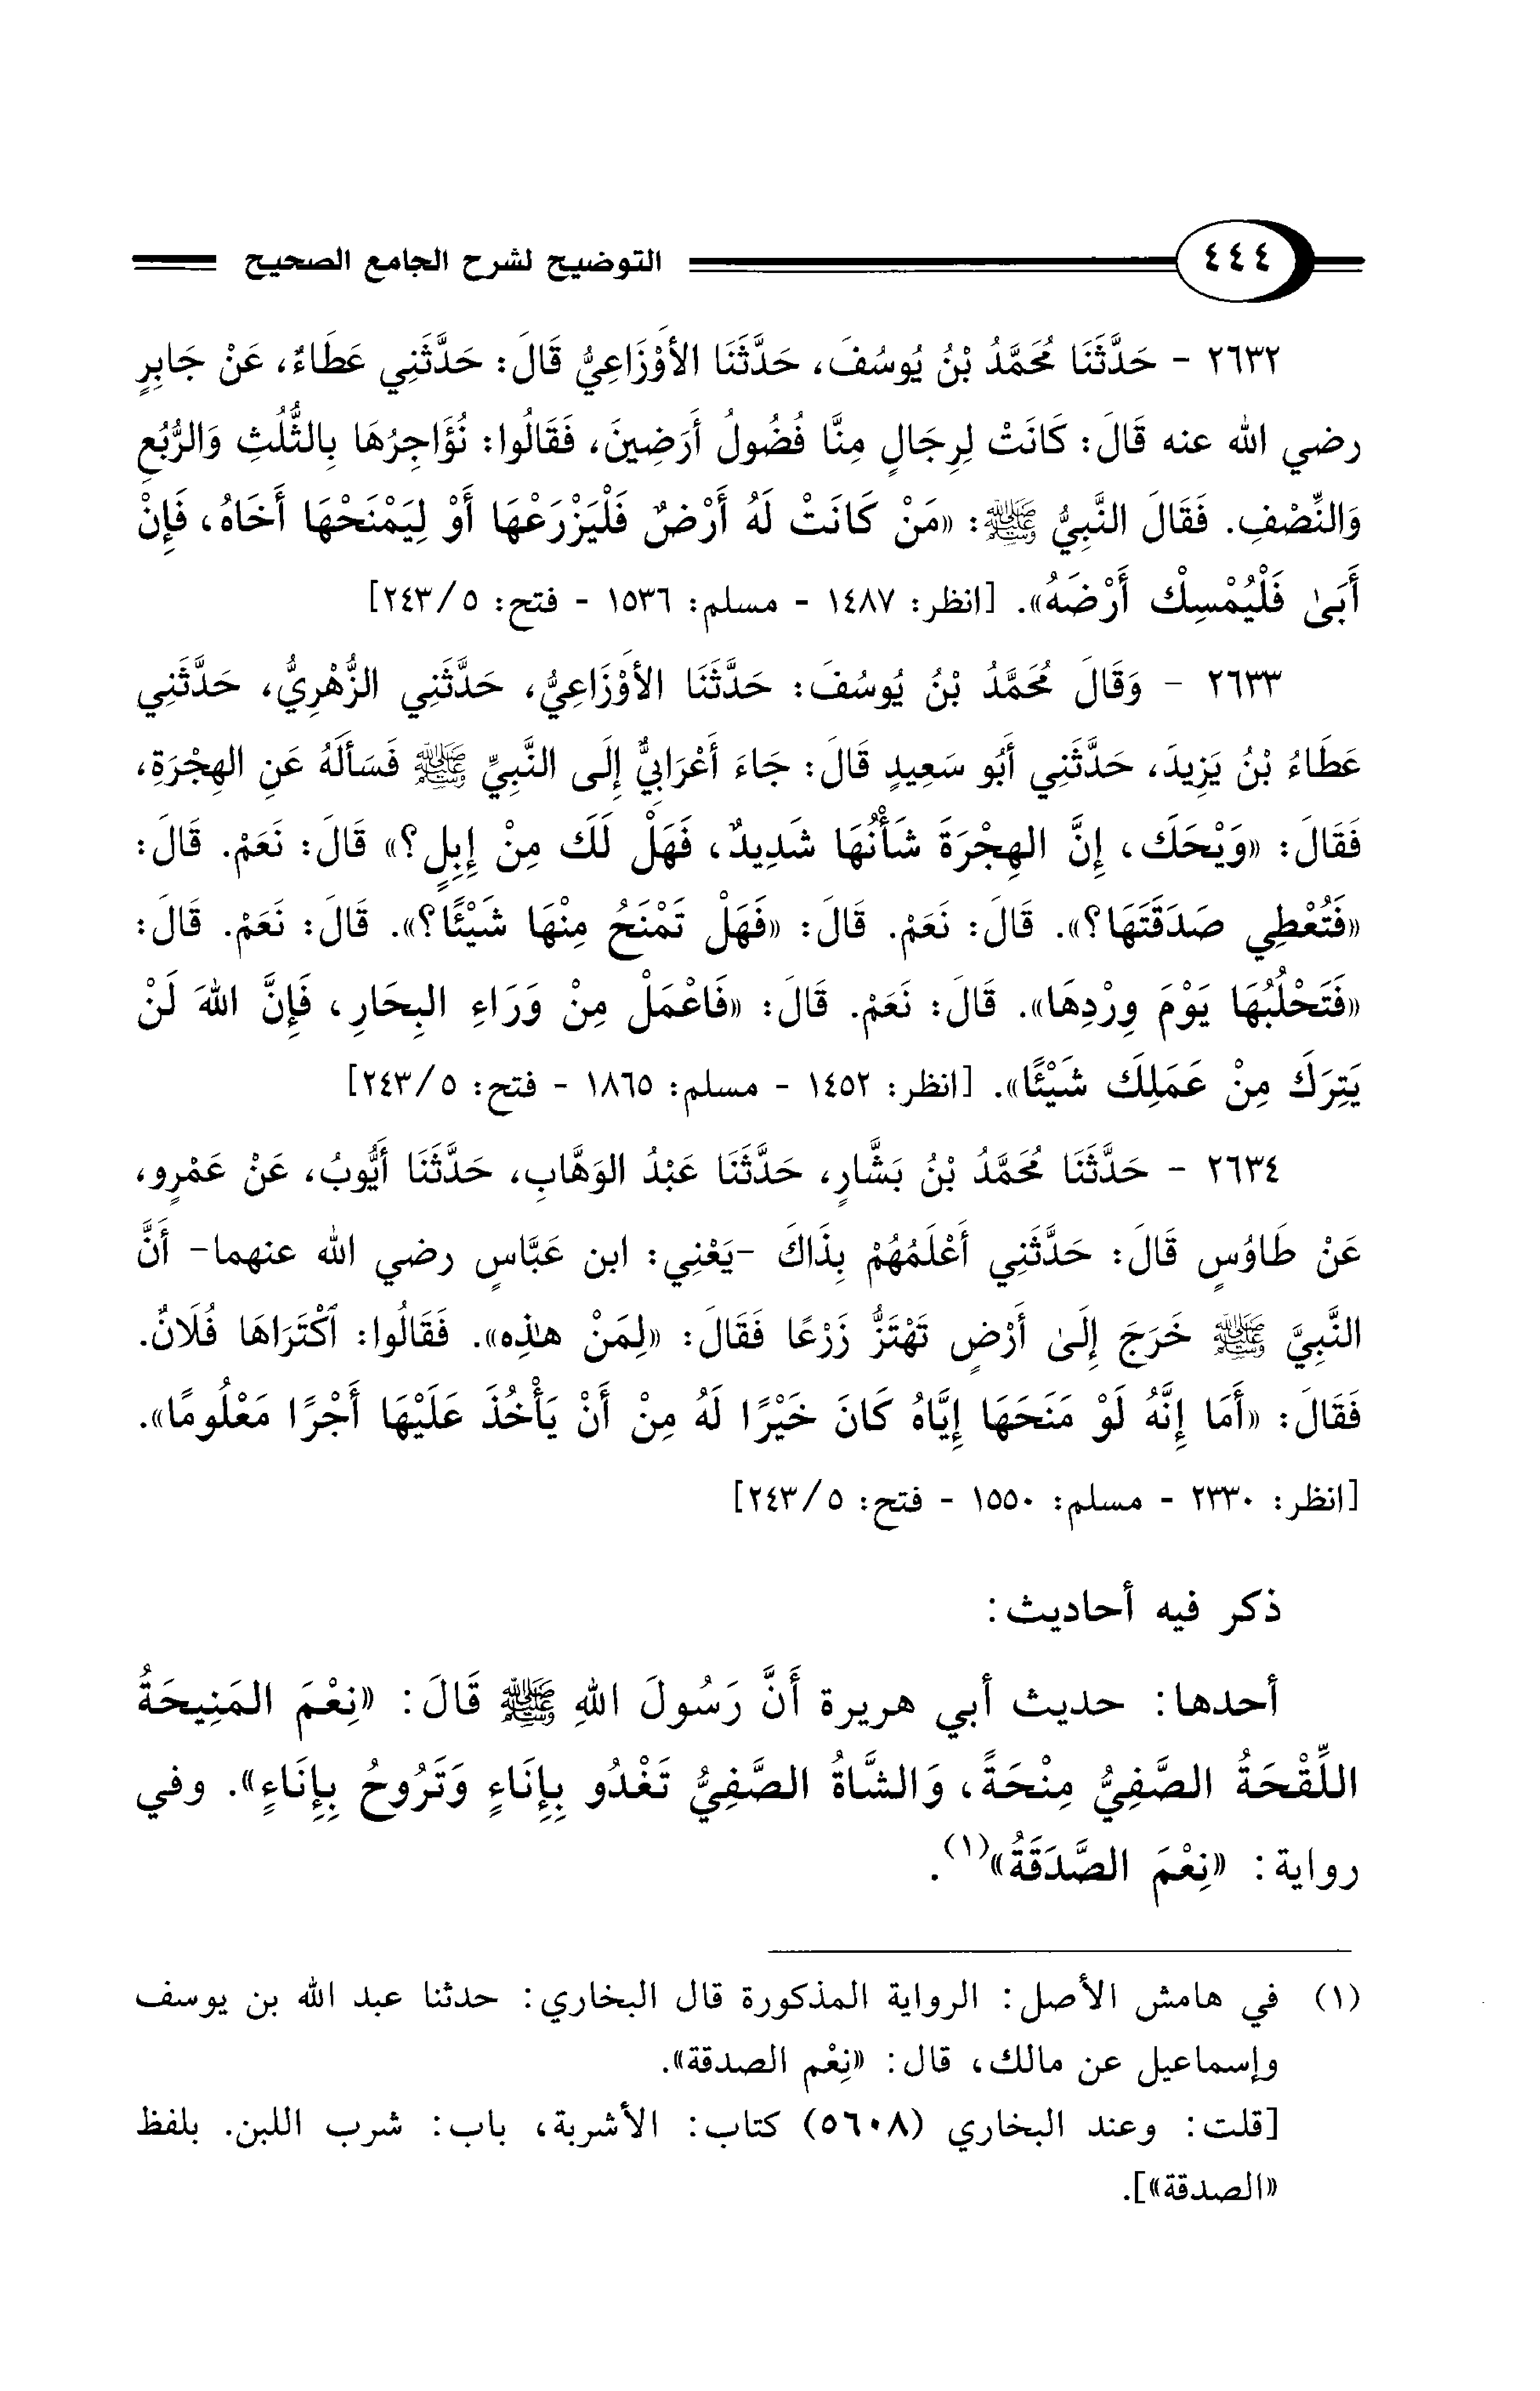 ٤٤٤ التوضيح لشرح الجامع الصحيح
٢٦٣٢ - حَدَّثَنَا مُحَمَّدُ بْنُ يُوسُفَ، حَدَّثَنَا الأَوْزَاعِيُّ قَالَ: حَدَّثَنِي عَطَاءٌ، عَنْ جَابِرٍ
رضي الله عنه قَالَ: كَانَتْ لِرِجَالٍ مِنَّا فُضُولُ أَرَضِينَ، فَقَالُوا: نُؤَاجِرُهَا بِالثُّلُثِ وَالرُّبُعِ
وَالنِّصْفِ. فَقَالَ النَّبِيُّ ﷺ: «مَنْ كَانَتْ لَهُ أَرْضٌ فَلْيَزْرَعْهَا أَوْ لِيَمْنَحْهَا أَخَاهُ، فَإِنْ
أَبَىٰ فَلْيُمْسِكْ أَرْضَهُ». [انظر: ١٤٨٧ - مسلم: ١٥٣٦ - فتح: ٥/ ٢٤٣]
٢٦٣٣ - وَقَالَ مُحَمَّدُ بْنُ يُوسُفَ: حَدَّثَنَا الأَوْزَاعِيُّ، حَدَّثَنِي الزُّهْرِيُّ، حَدَّثَنِي
عَطَاءُ بْنُ يَزِيدَ، حَدَّثَنِي أَبُو سَعِيدٍ قَالَ: جَاءَ أَعْرَابِيٌّ إِلَى النَّبِيِّ ﷺ فَسَأَلَهُ عَنِ الهِجْرَةِ،
فَقَالَ: «وَيْحَكَ، إِنَّ الهِجْرَةَ شَأْنُهَا شَدِيدٌ، فَهَلْ لَكَ مِنْ إِبِلٍ؟» قَالَ: نَعَمْ. قَالَ:
«فَتُعْطِي صَدَقَتَهَا؟». قَالَ: نَعَمْ. قَالَ: «فَهَلْ تَمْنَحُ مِنْهَا شَيْئًا؟». قَالَ: نَعَمْ. قَالَ:
«فَتَحْلُبُهَا يَوْمَ وِرْدِهَا». قَالَ: نَعَمْ. قَالَ: «فَاعْمَلْ مِنْ وَرَاءِ البِحَارِ، فَإِنَّ اللهَ لَنْ
يَتِرَكَ مِنْ عَمَلِكَ شَيْئًا». [انظر: ١٤٥٢ - مسلم: ١٨٦٥ - فتح: ٥/ ٢٤٣]
٢٦٣٤ - حَدَّثَنَا مُحَمَّدُ بْنُ بَشَّارٍ، حَدَّثَنَا عَبْدُ الوَهَّابِ، حَدَّثَنَا أَيُّوبُ، عَنْ عَمْرٍو،
عَنْ طَاوُسٍ قَالَ: حَدَّثَنِي أَعْلَمُهُمْ بِذَاكَ -يَعْنِي: ابن عَبَّاسٍ رضي الله عنهما- أَنَّ
النَّبِيَّ ﷺ خَرَجَ إِلَىٰ أَرْضٍ تَهْتَزُّ زَرْعًا فَقَالَ: «لِمَنْ هٰذِه». فَقَالُوا: ٱكْتَرَاهَا فُلَانٌ.
فَقَالَ: «أَمَا إِنَّهُ لَوْ مَنَحَهَا إِيَّاهُ كَانَ خَيْرًا لَهُ مِنْ أَنْ يَأْخُذَ عَلَيْهَا أَجْرًا مَعْلُومًا».
[انظر: ٢٣٣٠ - مسلم: ١٥٥٠ - فتح: ٥/ ٢٤٣]
ذكر فيه أحاديث:
أحدها: حديث أبي هريرة أَنَّ رَسُولَ اللهِ ﷺ قَالَ: «نِعْمَ المَنِيحَةُ
اللِّقْحَةُ الصَّفِيُّ مِنْحَةً، وَالشَّاةُ الصَّفِيُّ تَغْدُو بِإِنَاءٍ وَتَرُوحُ بِإِنَاءٍ». وفي
رواية: «نِعْمَ الصَّدَقَةُ»(١).
(١) في هامش الأصل: الرواية المذكورة قال البخاري: حدثنا عبد الله بن يوسف
وإسماعيل عن مالك، قال: «نِعْم الصدقة».
[قلت: وعند البخاري (٥٦٠٨) كتاب: الأشربة، باب: شرب اللبن. بلفظ
«الصدقة»].